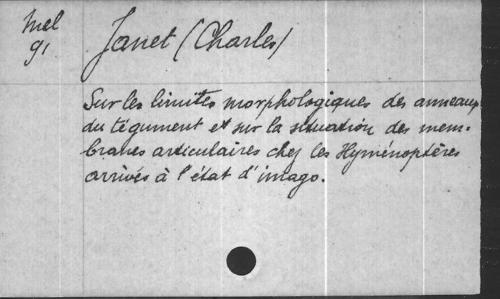 Mel
91
Janet (Charles)
Sur les limites morphologiques des anneaux
du tégument et sur la situation des mem-
branes articulaires chez les Hyménoptères
arrivés à l'état d'imago.